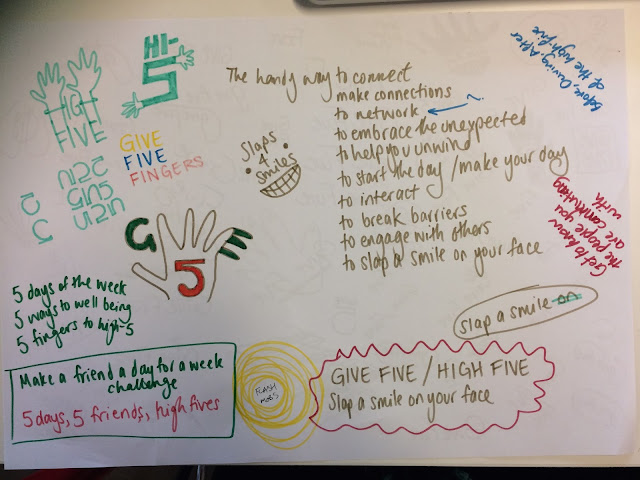 HI-
5
HIGH
FIVE
GIVE
FIVE
FINGERS
Slaps
4
Smiles
The handy way to connect
make connections
to network ?
to embrace the unexpected
to help you unwind
to start the day / make your day
to interact
to break barriers
to engage with others
to slap a smile on your face
Before, During, After
of the high five
Get to know
the people you
are commuting
with
G 5 E
5 days of the week
5 ways to well being
5 fingers to high-5
slap a smile on
Make a friend a day for a week
challenge
5 days, 5 friends, high fives
FLASH
MOBS
GIVE FIVE / HIGH FIVE
Slap a smile on your face